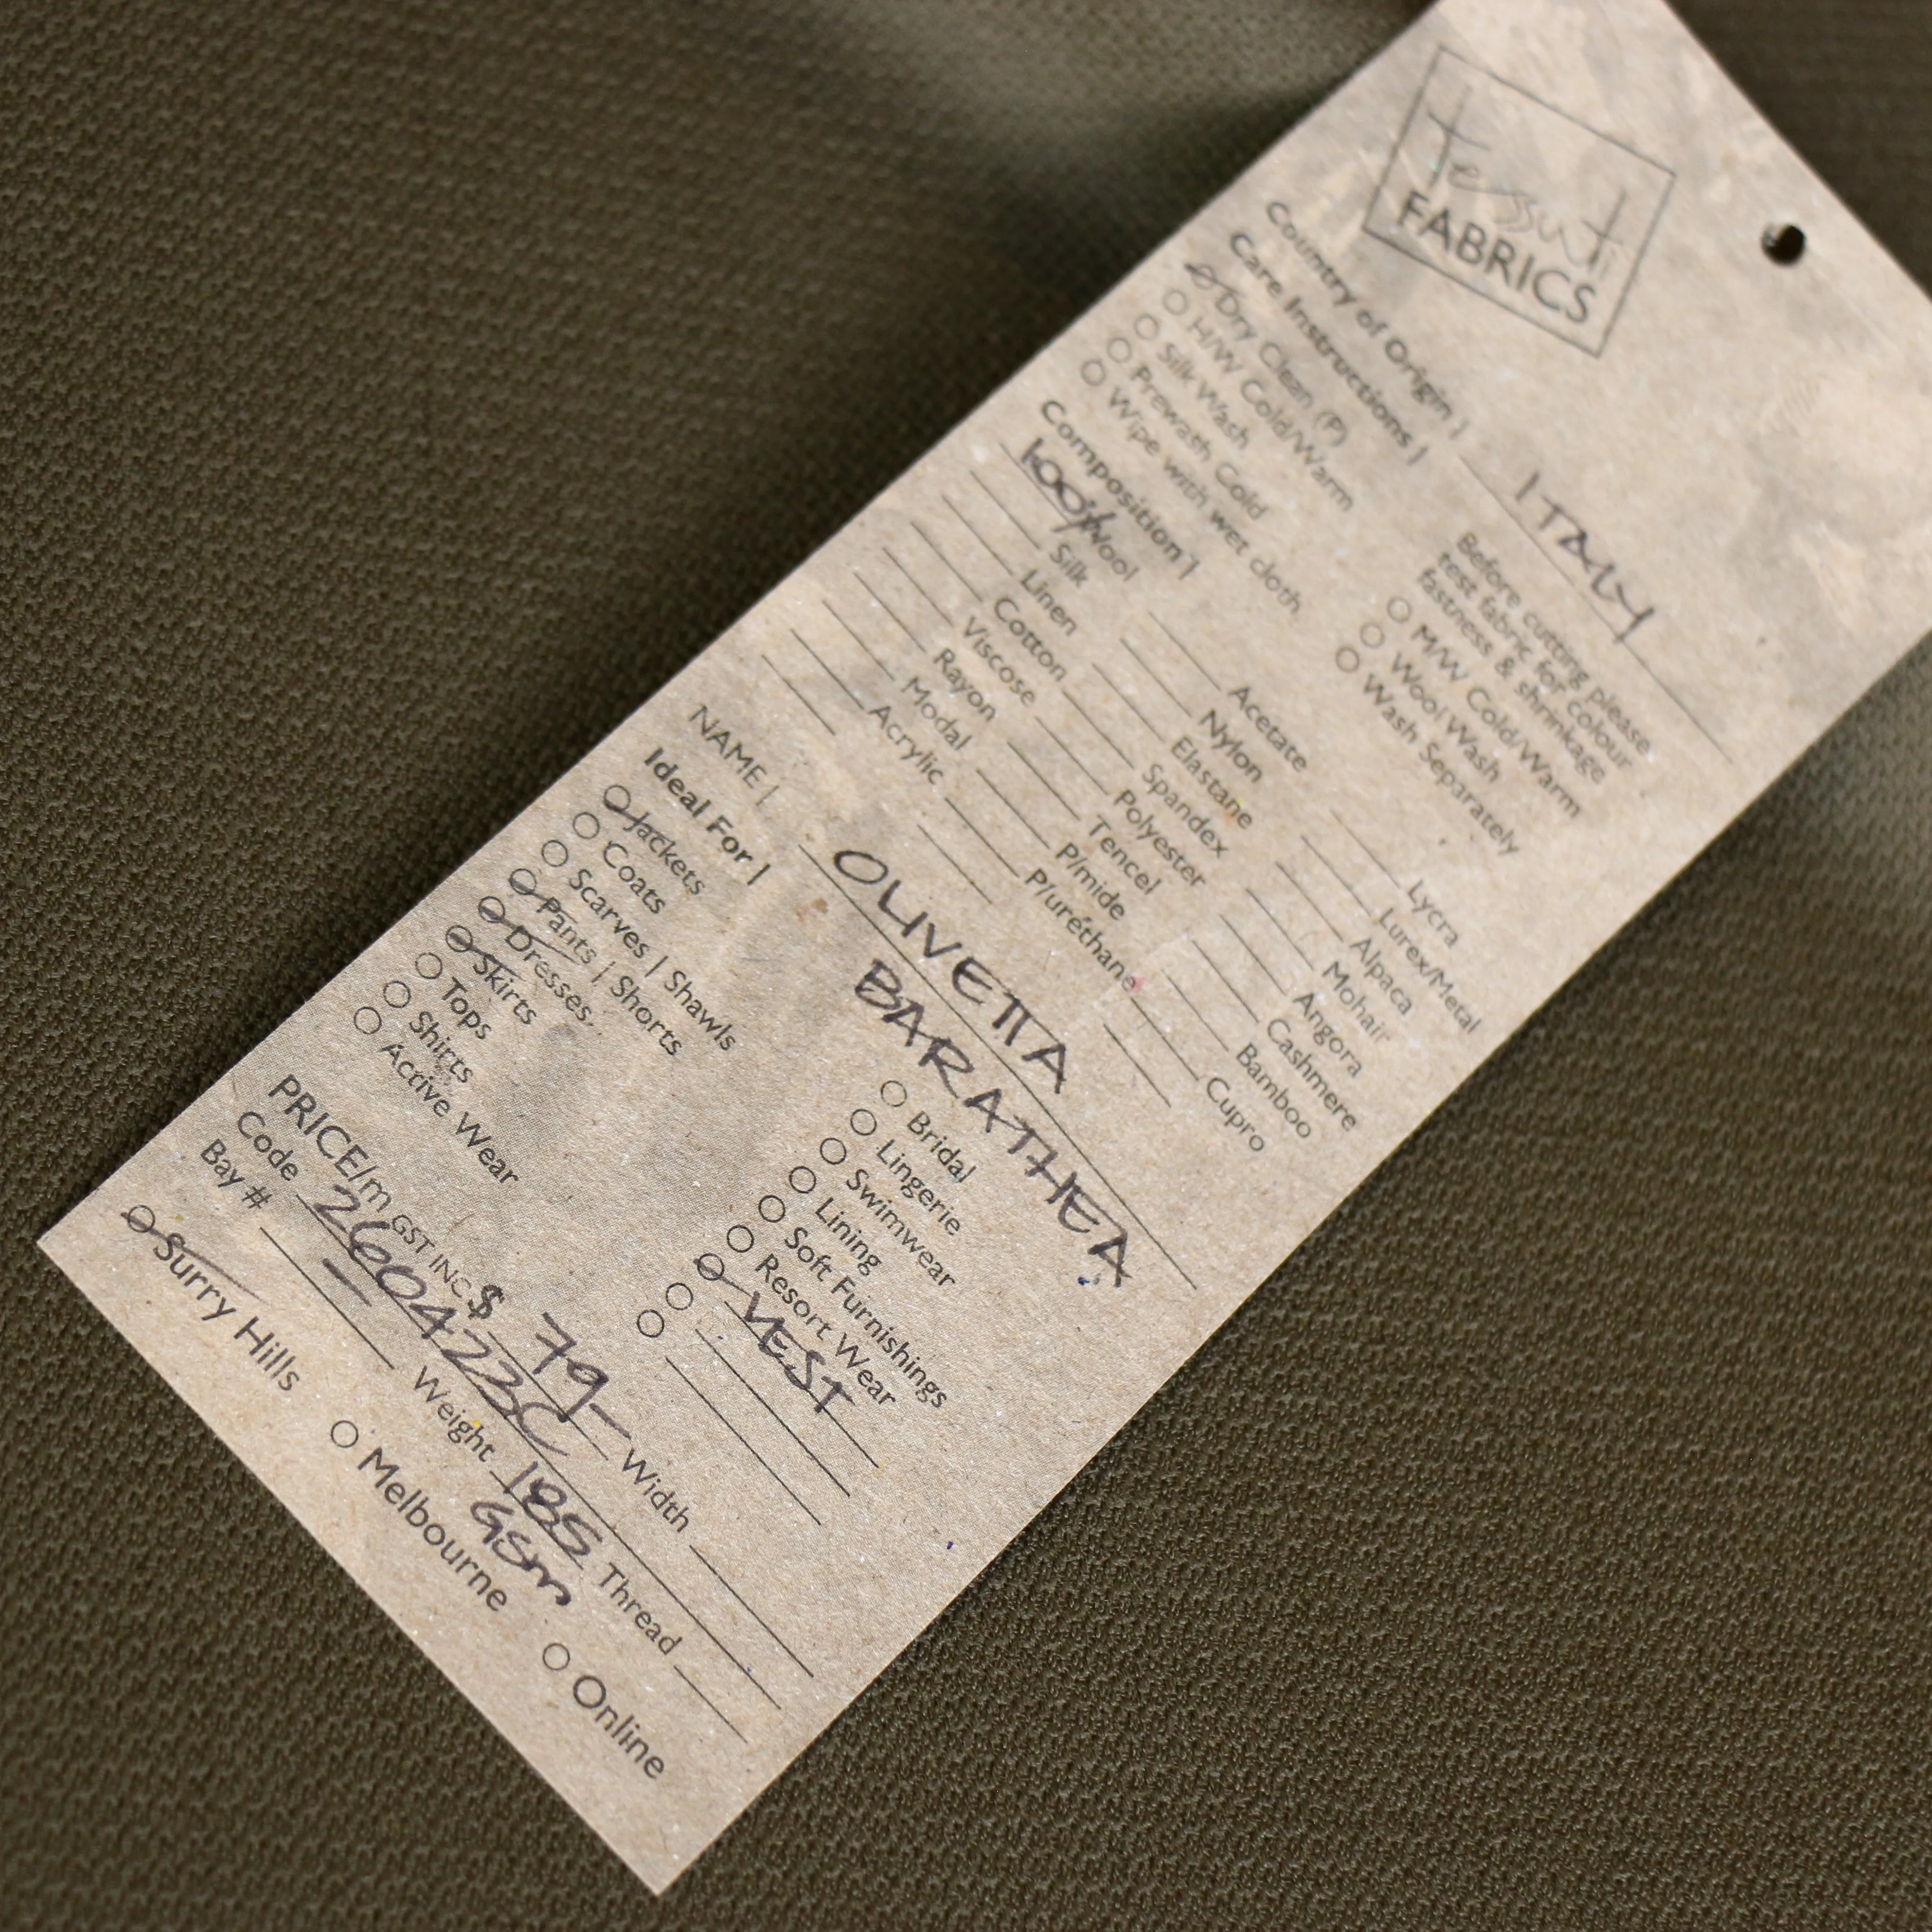 tessuti
FABRICS
Country of Origin | ITALY
Care Instructions |
Before cutting please
test fabric for colour
fastness & shrinkage
Dry Clean (P)
H/W Cold/Warm
Silk Wash
Prewash Cold
Wipe with wet cloth
M/W Cold/Warm
Wool Wash
Wash Separately
Composition |
100% Wool
Silk
Linen
Cotton
Viscose
Rayon
Modal
Acrylic
Acetate
Nylon
Elastane
Spandex
Polyester
Tencel
P/mide
P/urethane
Lycra
Lurex/Metal
Alpaca
Mohair
Angora
Cashmere
Bamboo
Cupro
NAME | OLIVETTA
BARATHEA
Ideal For |
Jackets
Coats
Scarves | Shawls
Pants | Shorts
Dresses
Skirts
Tops
Shirts
Active Wear
Bridal
Lingerie
Swimwear
Lining
Soft Furnishings
Resort Wear
VEST
PRICE/m GST INC $ 79- Width
Code 260423C
Bay # — Weight 185 Thread
GSM
Surry Hills Melbourne Online